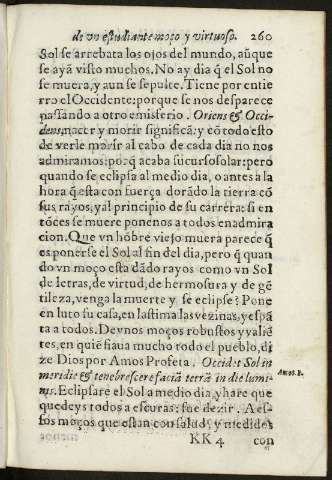 de vn estudiante moço y virtuoso. 260
Sol se arrebata los ojos del mundo, aũque
se ayã visto muchos. No ay dia q̃ el Sol no
se muera, y aun se sepulte. Tiene por entie
rro el Occidente: porque se nos desparece
passando a otro emisferio. Oriens & Occi-
dens, nacer y morir significã: y cõ todo esto
de verle morir al cabo de cada dia no nos
admiramos: porq̃ acaba su curso solar: pero
quando se eclipsa al medio dia, o antes a la
hora q̃ esta con fuerça dorãdo la tierra cõ
sus rayos, y al principio de su carrera: si en
tõces se muere ponenos a todos en admira
cion. Que vn hõbre viejo muera parece q̃
es ponerse el Sol al fin del dia, pero q̃ quan
do vn moço esta dãdo rayos como vn Sol
de letras, de virtud, de hermosura y de gẽ
tileza, venga la muerte y se eclipse? Pone
en luto su casa, en lastima las vezinas, y espã
ta a todos. De vnos moços robustos y valiẽ
tes, en quiẽ fiaua mucho todo el pueblo, di
ze Dios por Amos Profeta. Occidet Sol in
meridie & tenebrescere faciã terrã in die lumi-
nis. Eclipsare el Sol a medio dia, y hare que
Amos. 8.
quedeys todos a escuras: fue dezir. A es-
sos moços que estan con salud, y medidos
KK 4 con